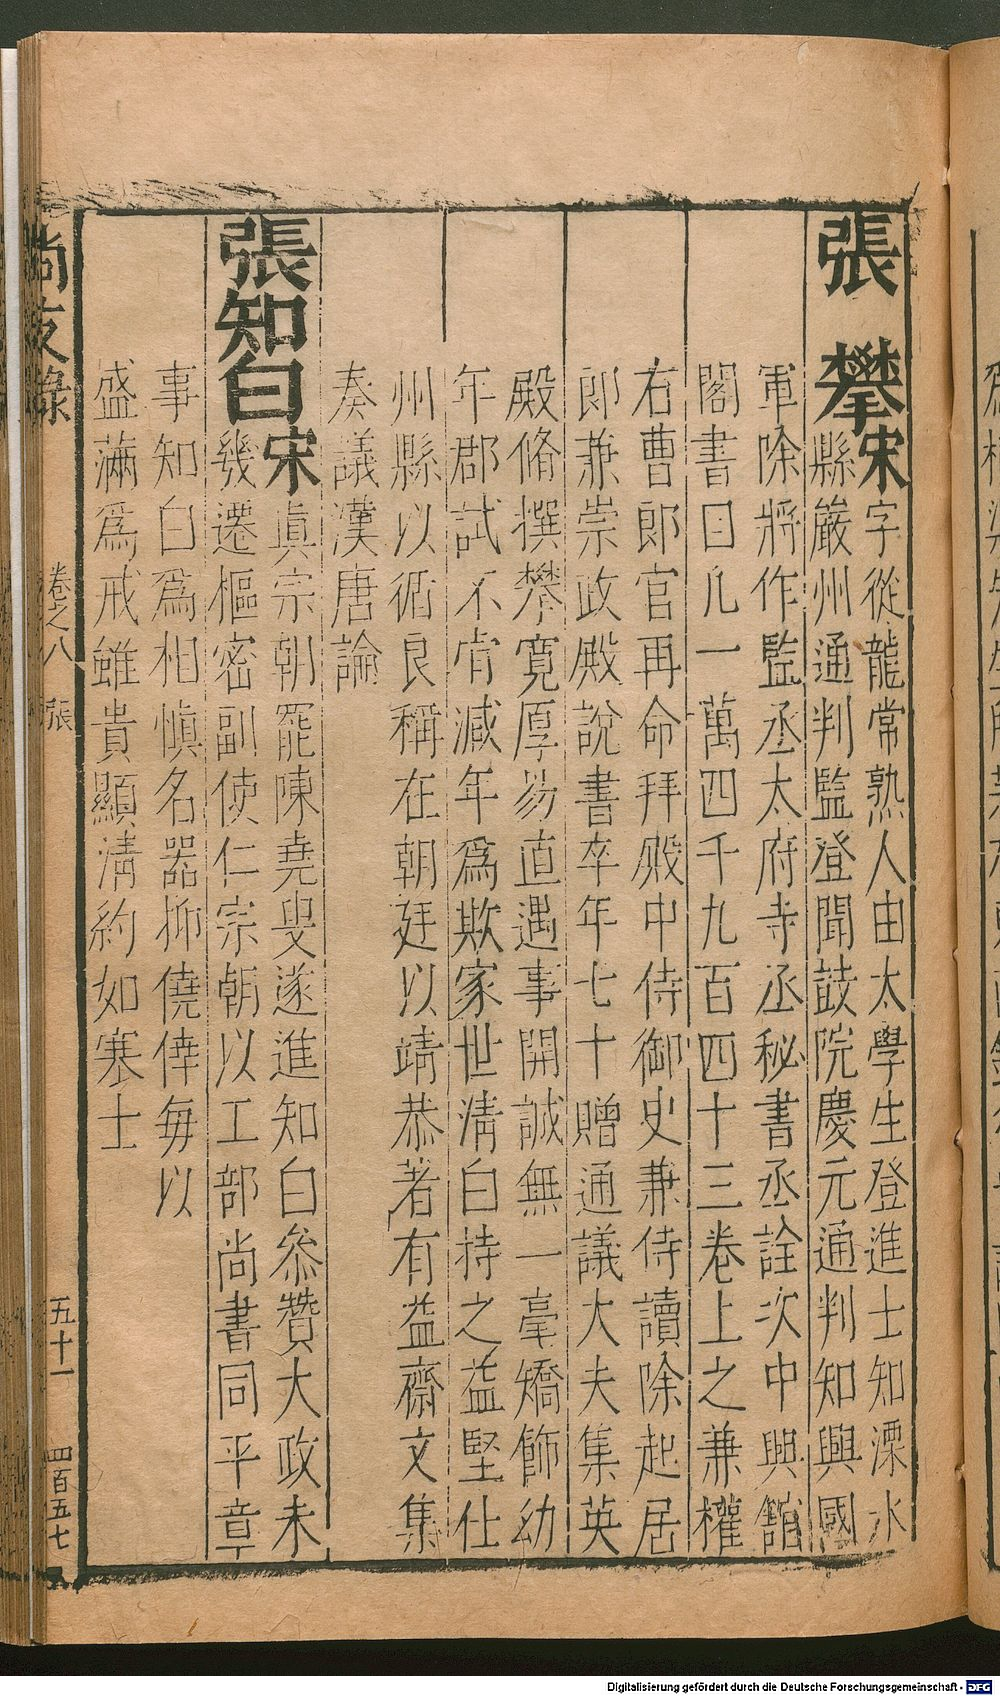 張攀宋字從龍常熟人由太學生登進士知溧水
縣嚴州通判監登聞鼓院慶元通判知興國
軍除將作監丞太府寺丞秘書丞詮次中興館
閣書目凡一萬四千九百四十三卷上之兼權
右曹郎官再命拜殿中侍御史兼侍讀除起居
郎兼崇政殿說書卒年七十贈通議大夫集英
殿脩撰攀寛厚昜直遇事開誠無一毫矯飾幼
年郡試不肯減年爲欺家世清白持之益堅仕
州縣以循良稱在朝廷以靖恭著有益齋文集
奏議漢唐論
張知白宋眞宗朝罷陳堯叟遂進知白叅贊大政未
幾遷樞密副使仁宗朝以工部尚書同平章
事知白爲相愼名器抑僥倖每以
盛滿爲戒雖貴顯清約如寒士
尚友錄 卷之八 張 五十一 四百五七
Digitalisierung gefördert durch die Deutsche Forschungsgemeinschaft - DFG